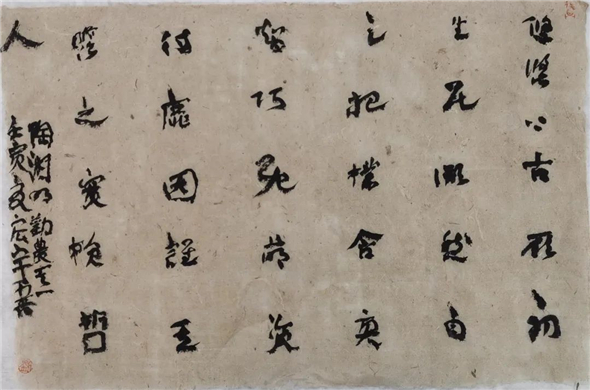 悠悠上古厥初
生民傲然自
足抱樸含真
智巧既萌資
待靡因誰其
贍之實賴哲
人
陶淵明勸農其一
壬寅夏宏